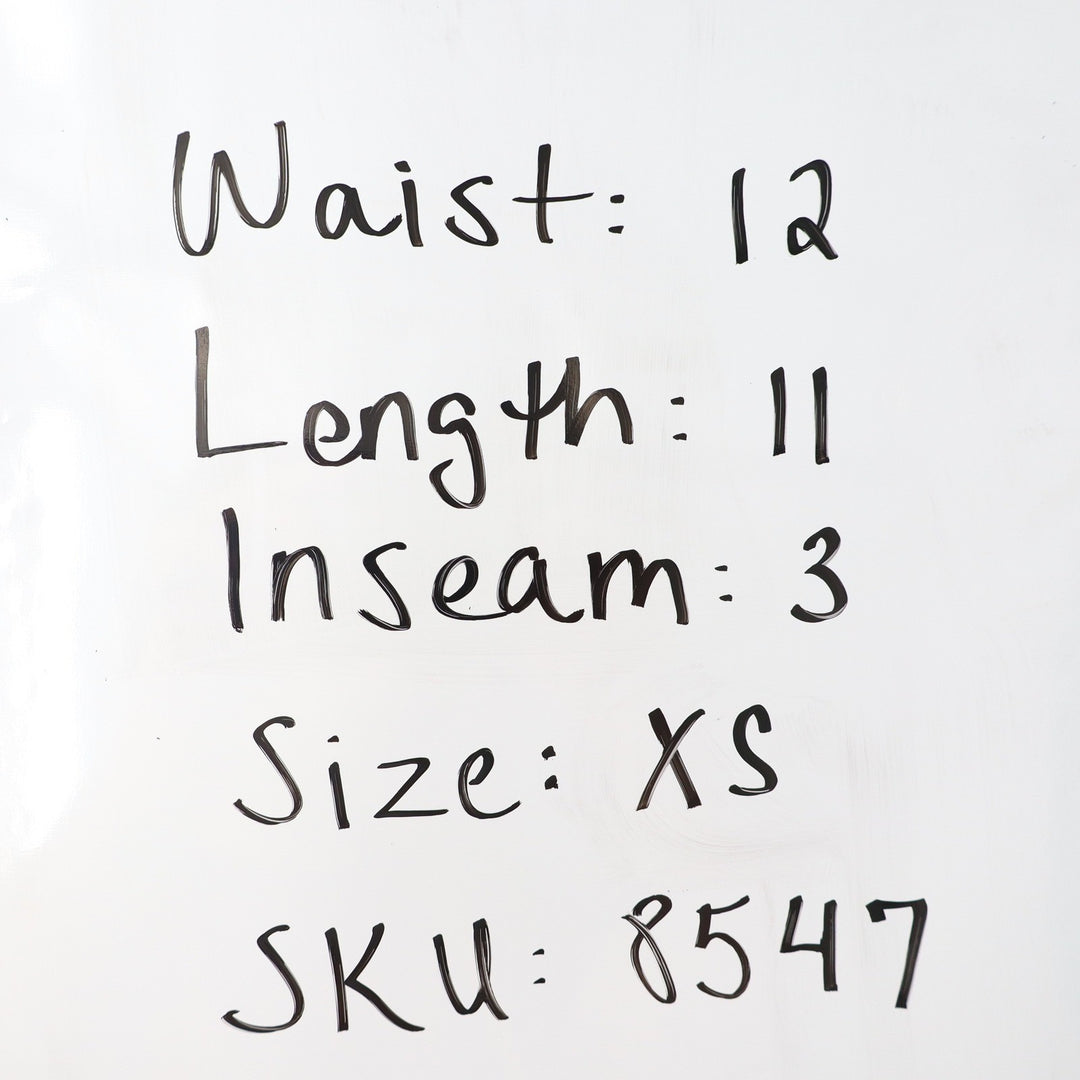 Waist: 12
Length: 11
Inseam: 3
Size: XS
SKU: 8547